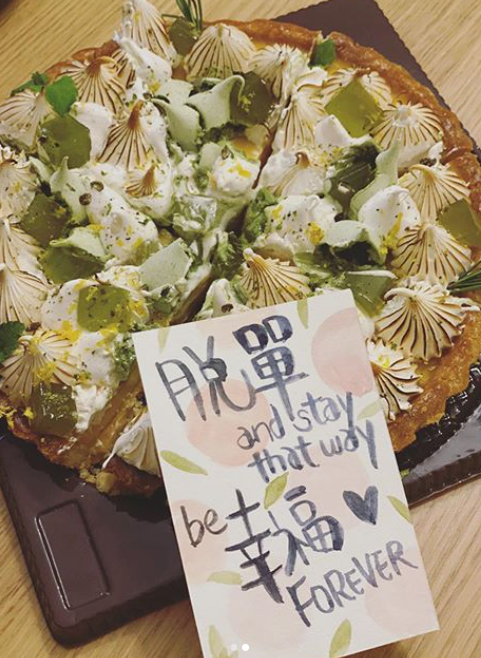 脫單
and stay
that way
be幸福♥
FOREVER